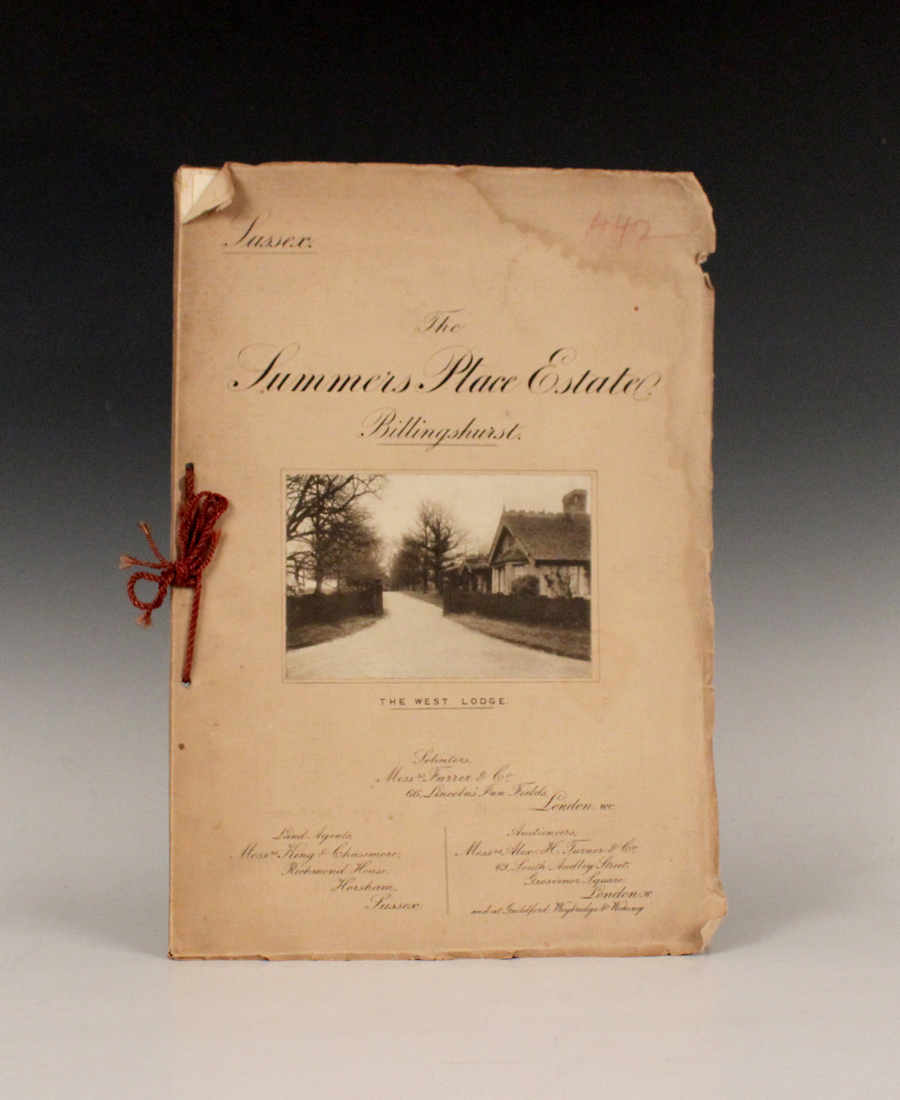 Sussex.
447
The
Summers Place Estate
Billingshurst.
THE WEST LODGE.
Solicitors,
Messrs Farrer & Co.
66, Lincoln's Inn Fields,
London, WC.
Land Agents,
Messrs King & Chasemore,
Richmond House,
Horsham,
Sussex.
Auctioneers,
Messrs Alex. H. Turner & Co.
69, South Audley Street,
Grosvenor Square,
London, W.
and at Guildford, Weybridge & Woking